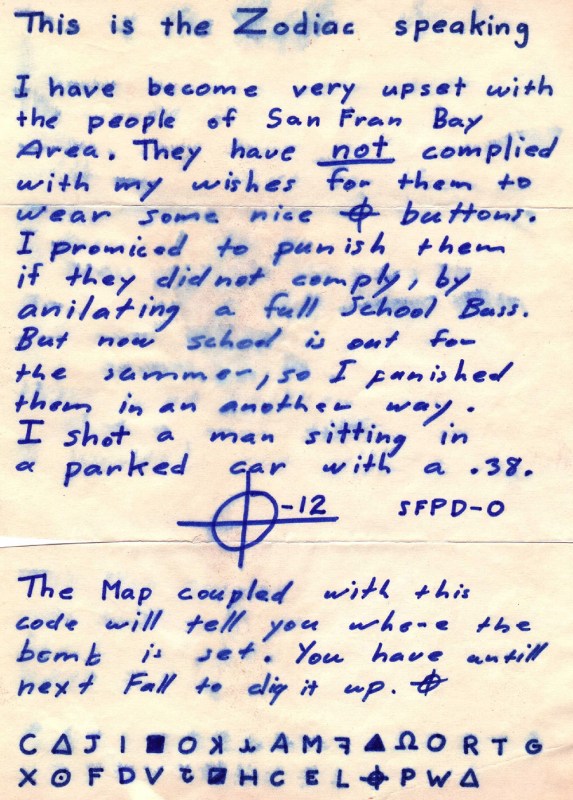 This is the Zodiac speaking
I have become very upset with
the people of San Fran Bay
Area. They have not complied
with my wishes for them to
wear some nice ⌖ buttons.
I promiced to punish them
if they did not comply, by
anilating a full School Buss.
But now school is out for
the summer, so I punished
them in an another way.
I shot a man sitting in
a parked car with a .38.
⌖-12 SFPD-0
The Map coupled with this
code will tell you where the
bomb is set. You have untill
next Fall to dig it up. ⌖
C Δ J I ■ O ꓘ A M ▲ Ω O R T G
X ⊙ F D V ◪ H C E L ⌖ P W Δ